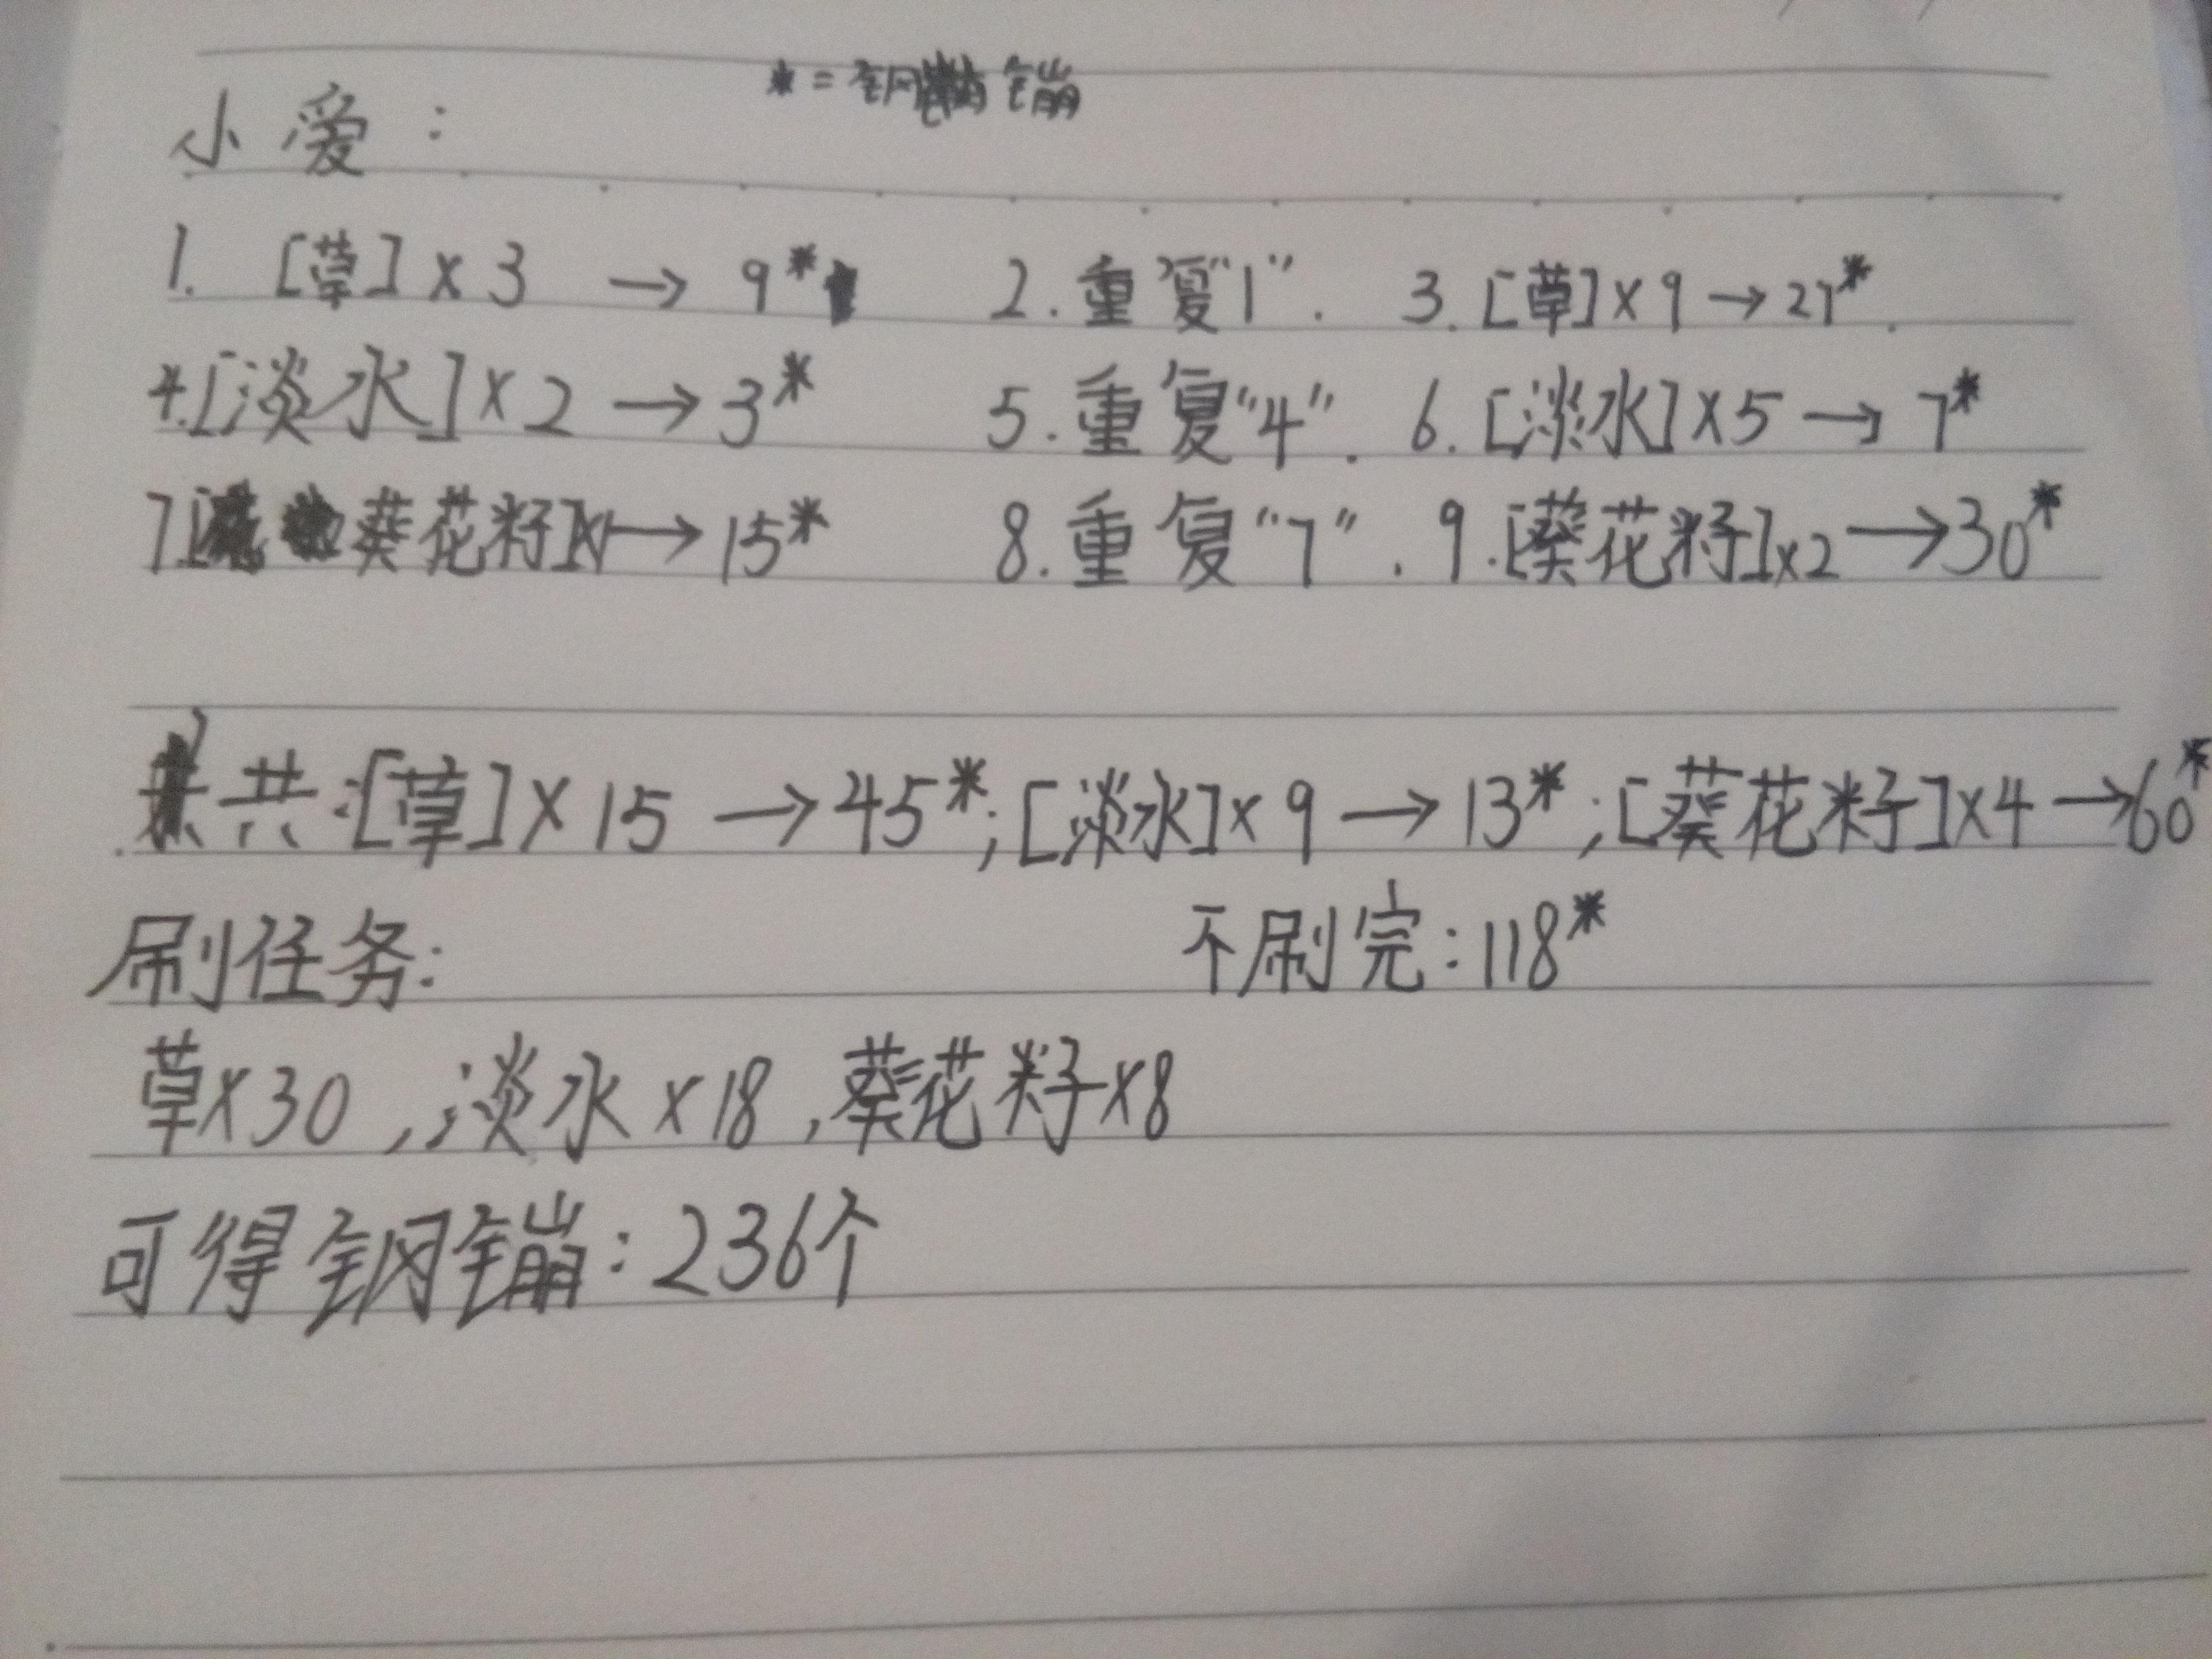 *=钢镚
小爱：
1. [草]×3 → 9*  2.重复“1”.  3.[草]×9→27*.
4.[淡水]×2→3*  5.重复“4”.  6.[淡水]×5→7*
7.[葵花籽]×1→15*  8.重复“7”.  9.[葵花籽]×2→30*
共:[草]×15→45*;[淡水]×9→13*;[葵花籽]×4→60*
刷任务:  不刷完:118*
草×30,淡水×18,葵花籽×8
可得钢镚:236个